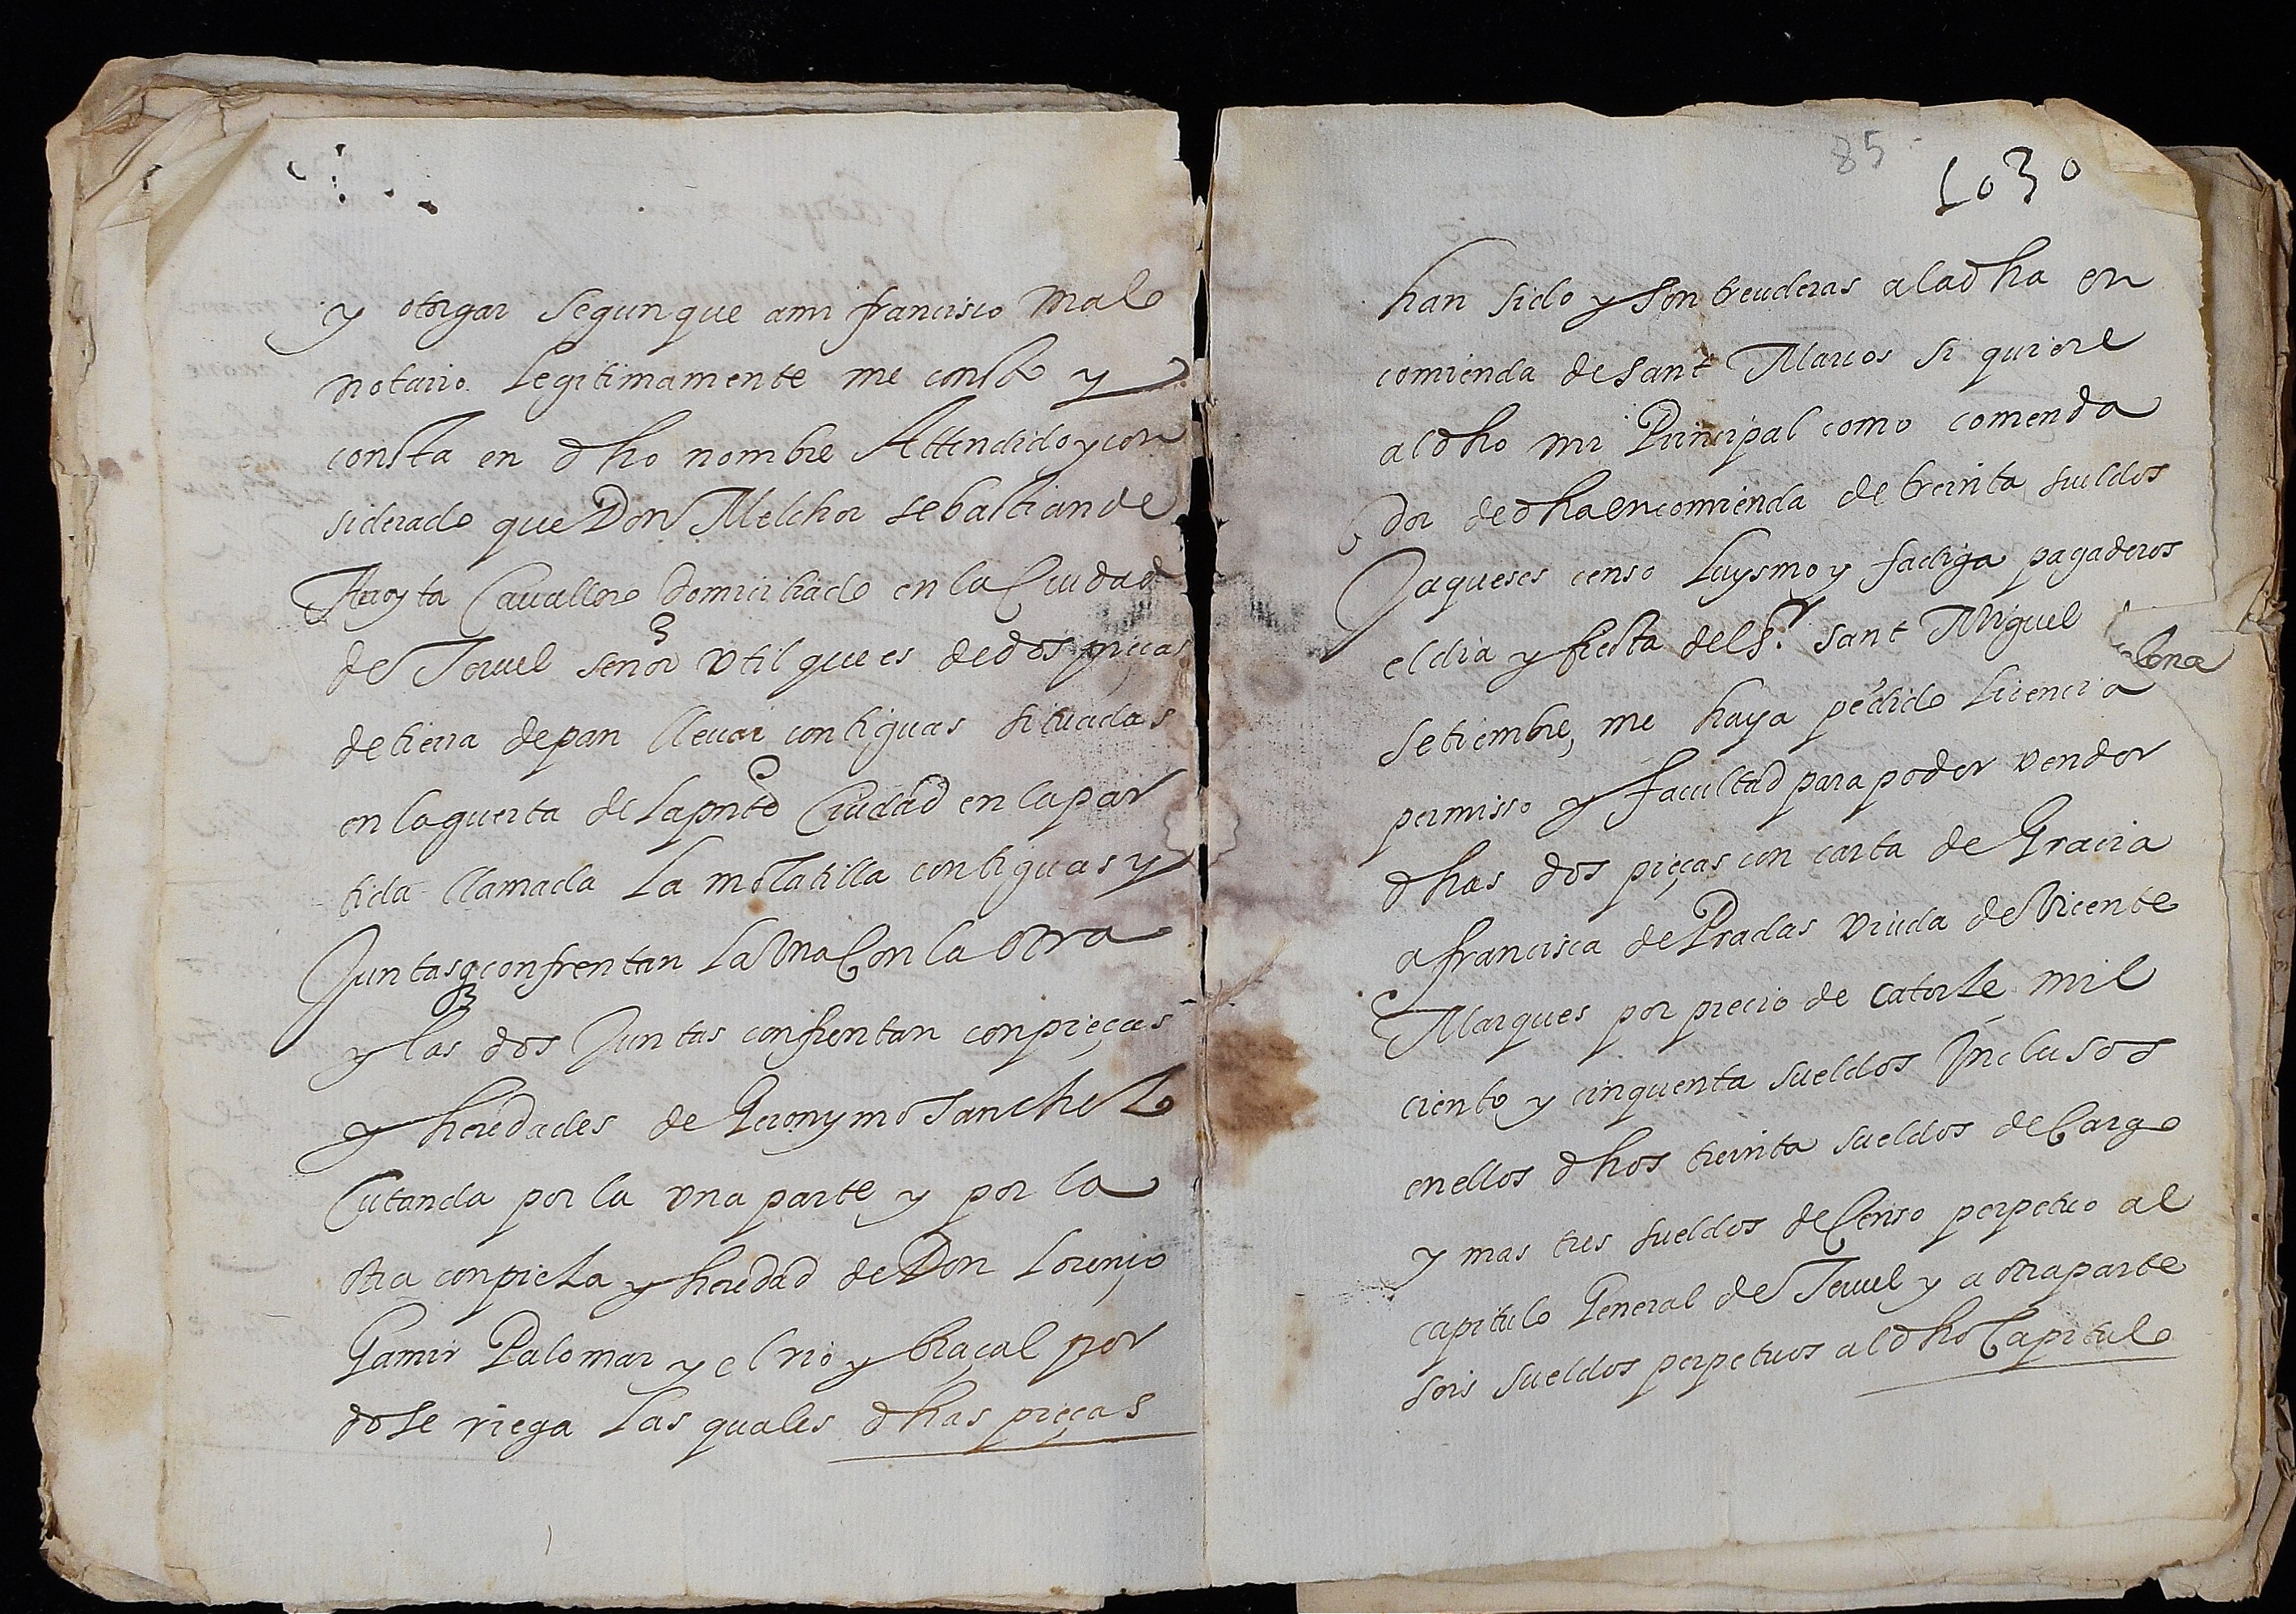 y otorgar segun que ami francisco malo
notario legitimamente me consto y
consta en dho nombre Attendido y con
siderado que Don Melchor sebastian de
Cavallero domiciliado en la Ciudad
de Teruel señor vtil que es de dos pieças
de tierra de pan lleuar contiguas situadas
en la guerta de la pnte Ciudad en la par
tida llamada La molatilla contiguas y
Juntas q confrentan La vna Con la otra
y las dos Juntas confrentan con pieças
y heredades de Geronymo sanchez
Cutanda por la vna parte y por la
otra con pieza y heredad de Don Lorenço
Gamir Palomar y el rio y braçal por
do se riega Las quales dhas pieças
85
1030
han sido y son treuderas a la dha en
comienda de sant Marcos si quiere
al dho mi Principal como comenda
dor de dha encomienda de treinta sueldos
Jaqueses censo Luysmo y fadiga pagaderos
el dia y fiesta del Sr. sant Miguel
setiembre, me haya pedido licencia
permisso y facultad para poder vender
dhas dos pieças con carta de Gracia
a francisca de Pradas viuda de Vicente
Marques por precio de catorze mil
ciento y cinquenta sueldos Inclusos
en ellos dhos treinta sueldos de Cargo
y mas tres sueldos de Censo perpetuo al
capitulo General de Teruel y a otra parte
seis sueldos perpetuos al dho Capitulo